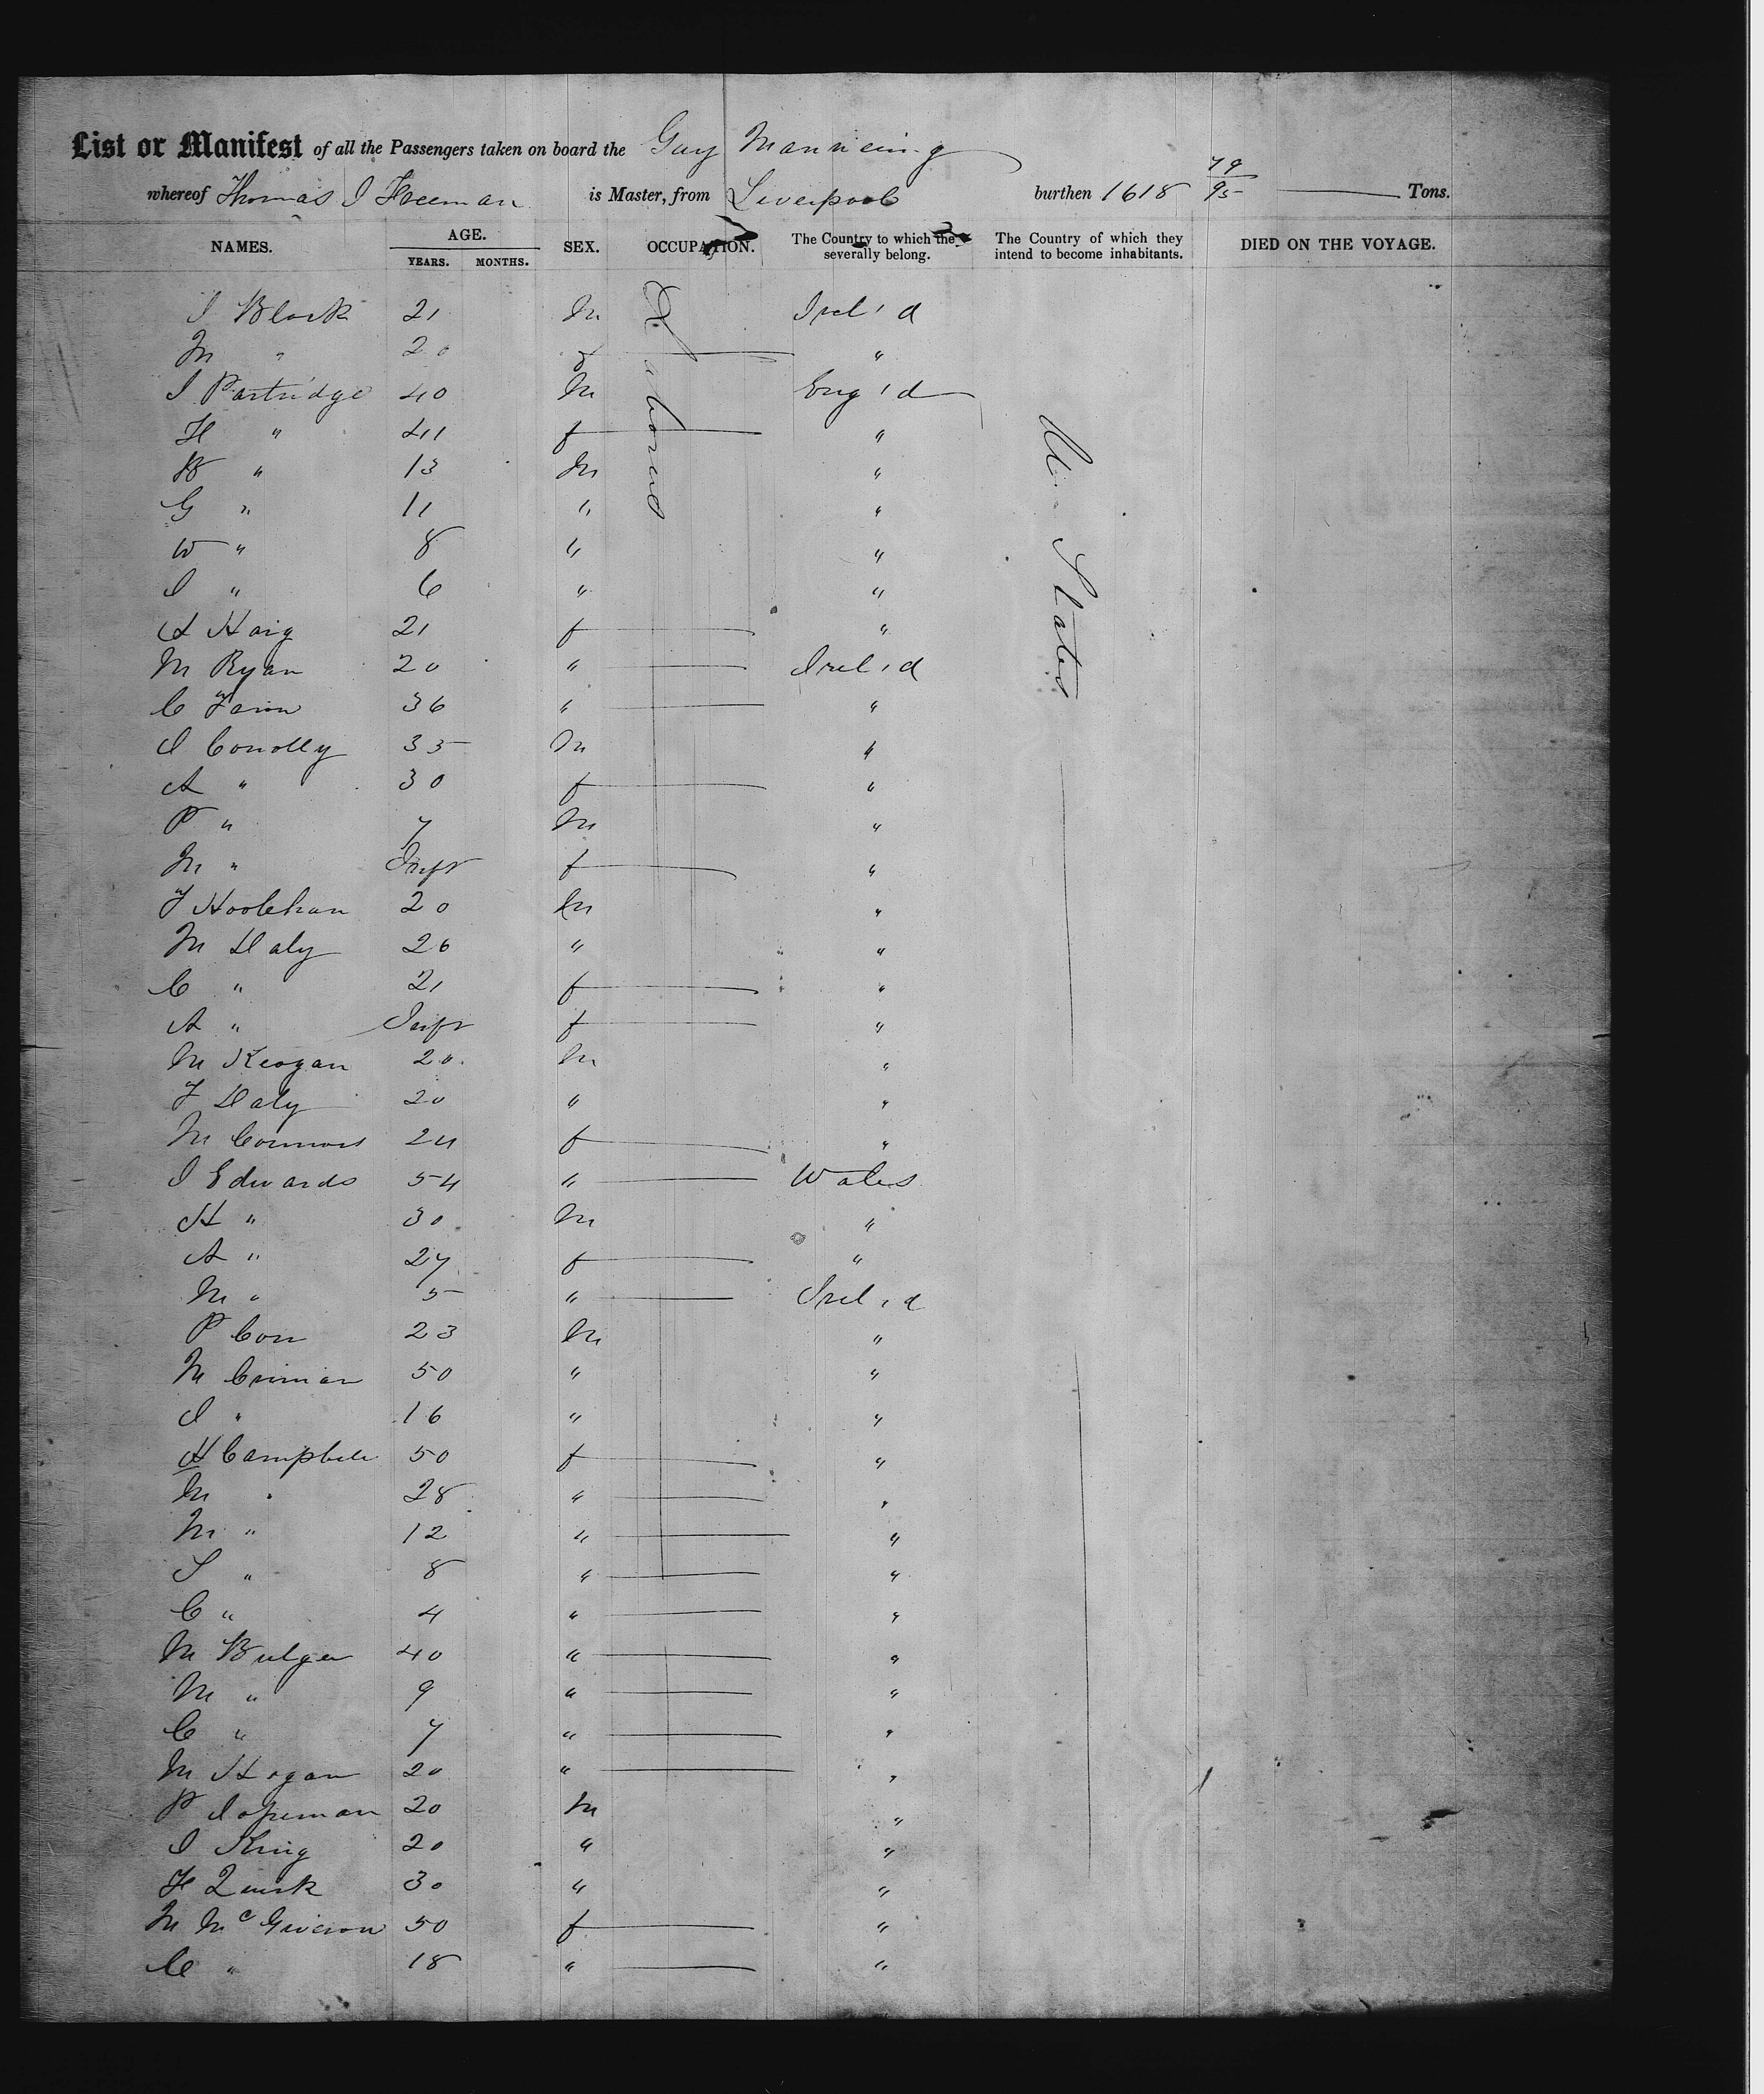 List or Manifest of all the Passengers taken on board the Guy Mannering
whereof Thomas J Freeman is Master, from Liverpool burthen 1618 79/95 Tons.
NAMES. AGE. YEARS. MONTHS. SEX. OCCUPATION. The Country to which they severally belong. The Country of which they intend to become inhabitants. DIED ON THE VOYAGE.
J Black 21 M Irel'd
M " 20 f "
J Partridge 40 M Eng'd
H " 41 f "
B " 13 M "
G " 11 " "
W " 8 " "
J " 6 " "
A Haig 21 f "
M Ryan 20 " Irel'd
C 36 " "
J Conolly 35 M "
A " 30 f "
P " 7 M "
M " Inft f "
T Hoolehan 20 M "
M Daly 26 " "
C " 21 f "
A " Inft f "
M Keogan 20 M "
T Daly 20 " "
M Connors 24 f "
J Edwards 54 " Wales
H " 30 M "
A " 27 f "
M " 5 " Irel'd
P 23 M "
M 50 " "
J " 16 " "
H Campbell 50 f "
M " 28 " "
M " 12 " "
S " 8 " "
C " 4 " "
M Bulger 40 " "
M " 9 " "
C " 7 " "
M Hogan 20 " "
P 20 M "
J King 20 " "
H Quirk 30 " "
M McGiveron 50 f "
C " 18 " "
Labourers
States